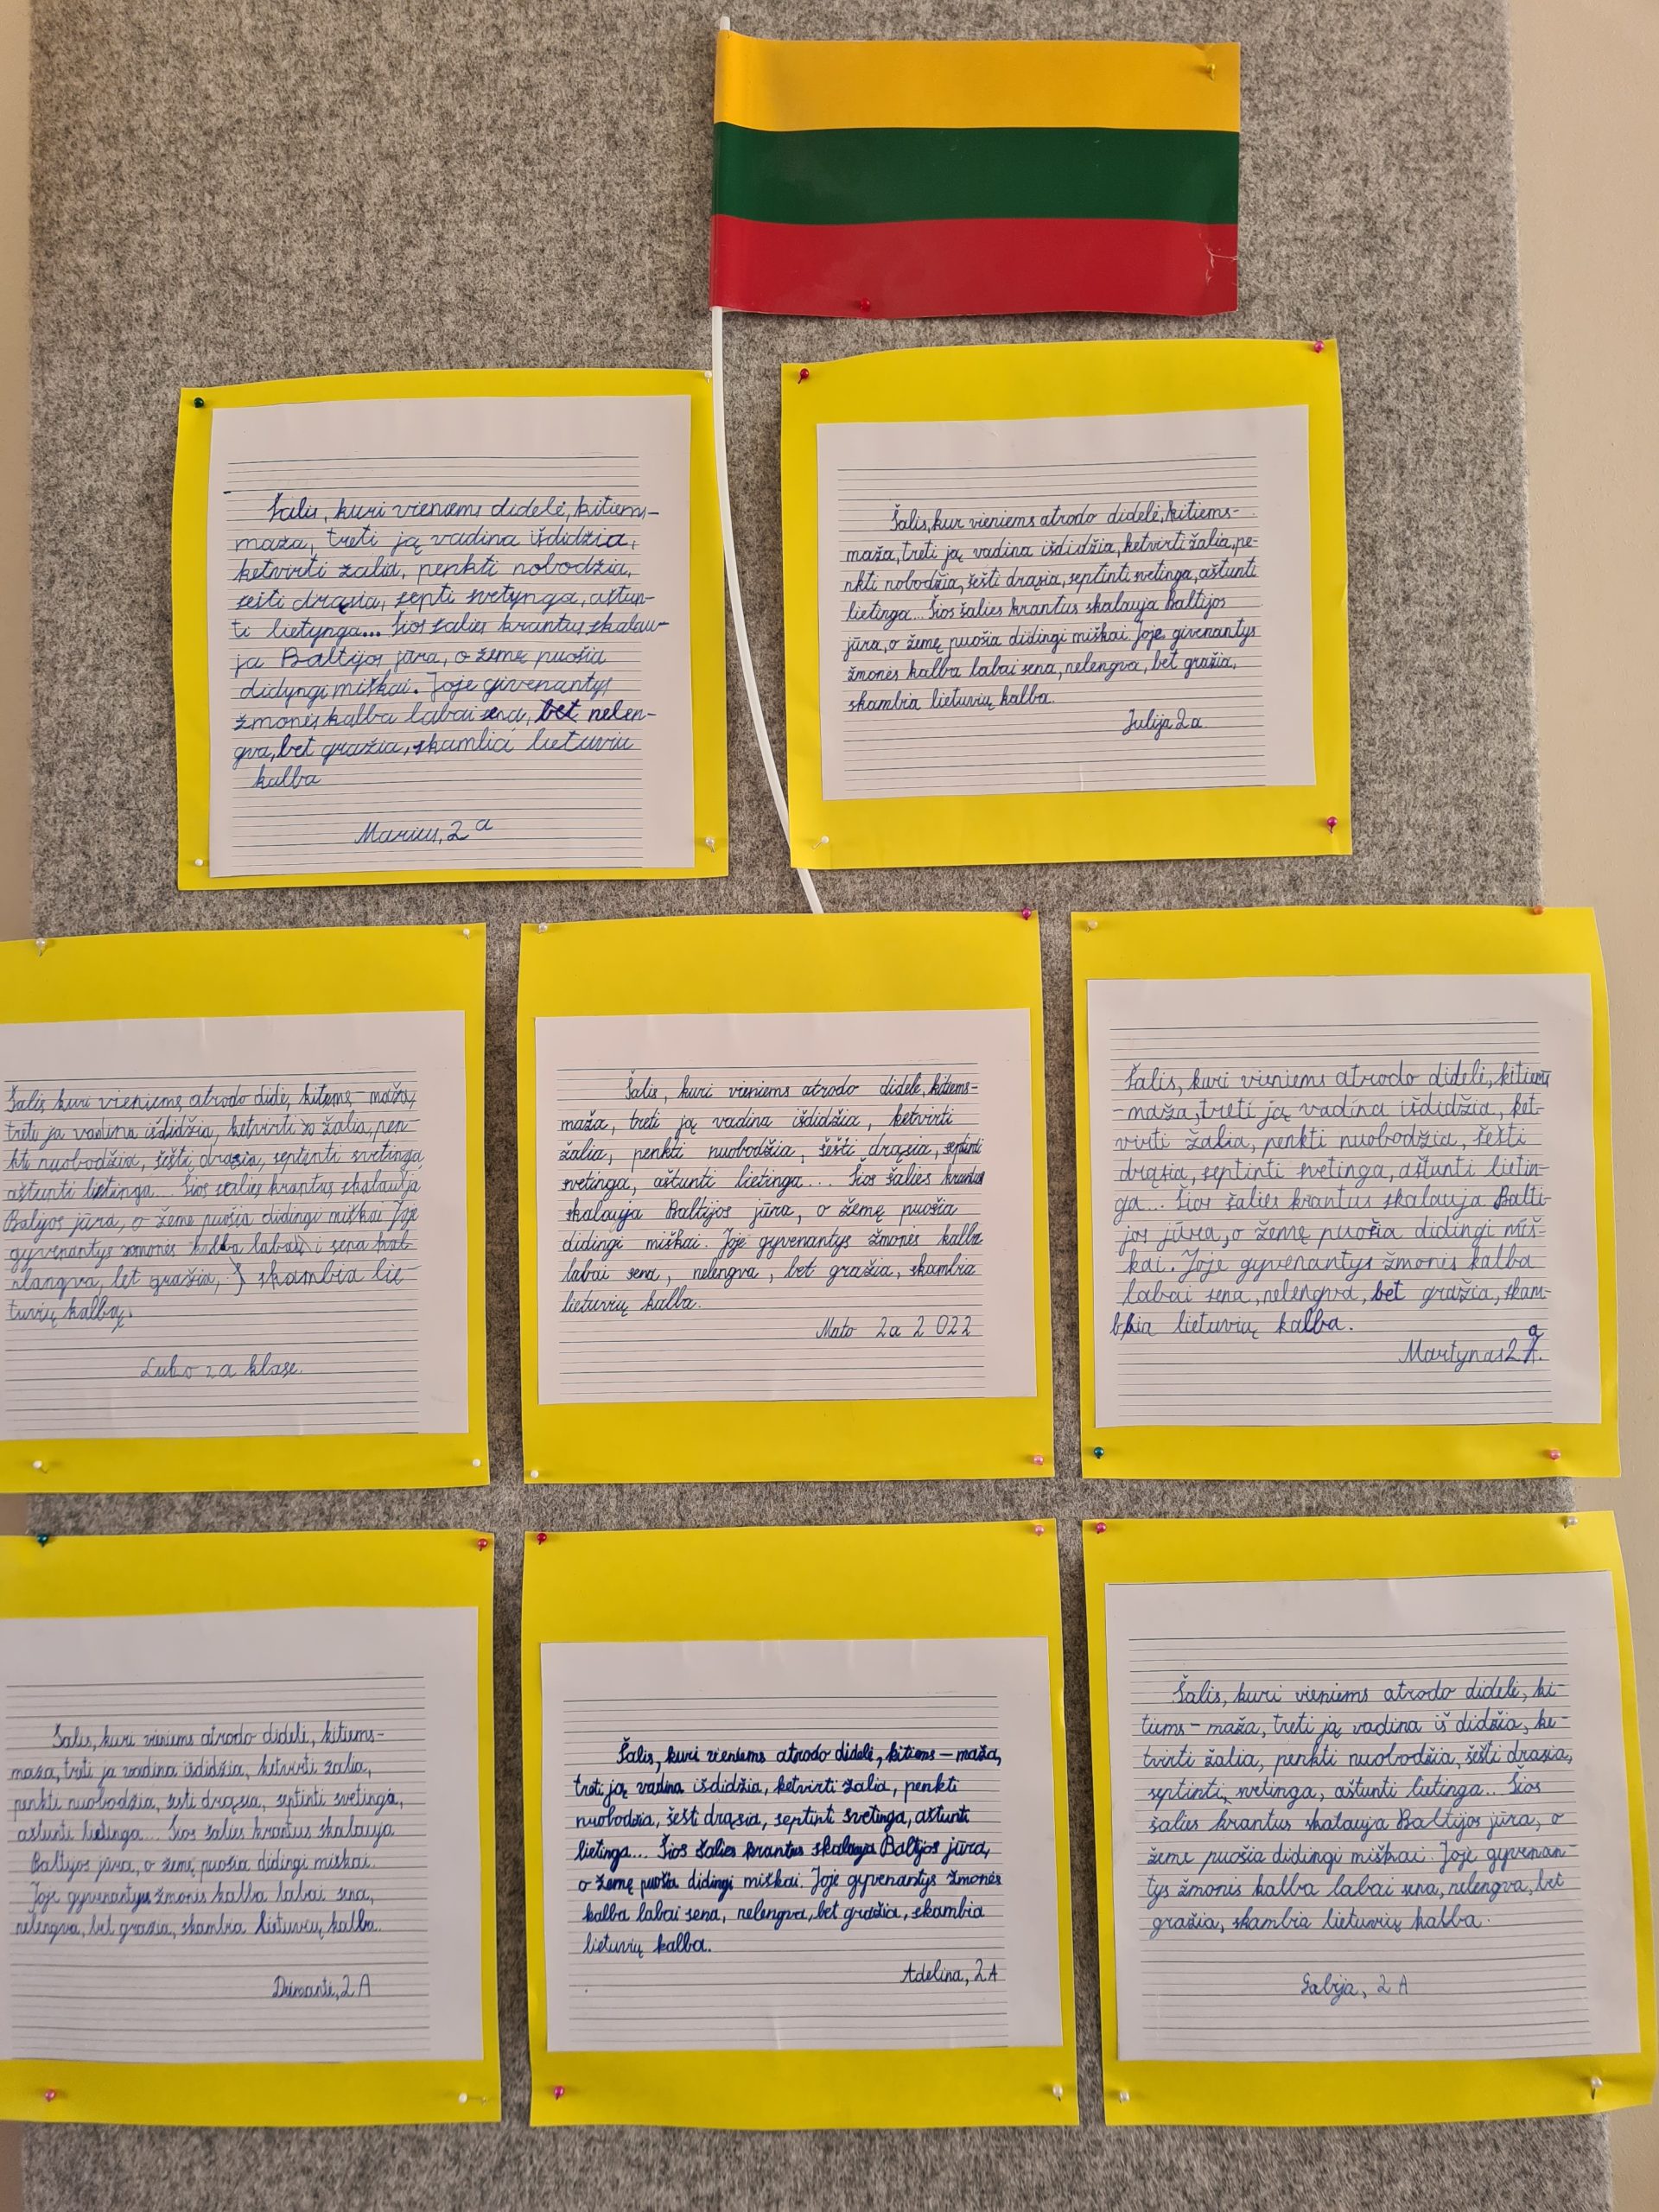 Šalis, kuri vieniems didelė, kitiems-
maža, treti ją vadina išdidžia,
ketvirti žalia, penkti nobodžia,
šešti drąsia, septi svetynga, aštun-
ti lietynga... Šios šalies krantus skalau-
ja Baltijos jūra, o žemę puošia
didyngi miškai. Joje givenantys
žmonės kalba labai sena, bet nelen-
gva, bet gražia, skambia lietuviu
kalba
Marius, 2 a
Šalis, kur vieniems atrodo didelė, kitiems-
maža, treti ją vadina išdidžia, ketvirti žalia, pe-
nkti nobodžia, šešti drąsia, septinti svetinga, aštunti
lietinga... Šios šalies krantus skalauja Baltijos
jūra, o žemę puošia didingi miškai. Joje givenantys
žmonės kalba labai sena, nelengva, bet gražia,
skambia lietuvių kalba.
Julija 2a
Šalis, kuri vieniems atrodo didė, kitems - maža,
treti ja vadina išdidžia, ketvirti žalia, pen-
kti nuobodžia, šešti drąsia, septinti svetinga
aštunti lietinga... Šios šalies krantus skalauja
Balijos jūra, o žemę puošia didingi miškai Joje
gyvenantys žmonės kalba labai sena
nlangva, bet gražia, skambia lie-
tuvių kalbą.
2a klase.
Šalis, kuri vieniems atrodo didelė, kitiems-
maža, treti ją vadina išdidžia, ketvirti
žalia, penkti nuobodžia, šešti drąsia, septinti
svetinga, aštunti lietinga... Šios šalies krantus
skalauja Baltijos jūra, o žemę puošia
didingi miškai. Joje gyvenantys žmonės kalba
labai sena, nelengva, bet gražia, skambia
lietuvių kalba.
Mato 2a 2022
Šalis, kuri vieniems atrodo didelė, kitiems
-maža, treti ją vadina išdidžia, ket-
virti žalia, penkti nuobodžia, šešti
drąsia, septinti svetinga, aštunti lietin-
ga... Šios šalies krantus skalauja Balti-
jos jūra, o žemę puošia didingi miš-
kai. Joje gyvenantys žmonės kalba
labai sena, nelengva, bet gražia, skam-
bia lietuvių kalba.
Martynas 2 a
Šalis, kuri vieniems atrodo didelė, kitiems-
maža, treti ja vadina išdidžia, ketvirti žalia,
penkti nuobodžia, šesti drąsia, septinti svetinga,
aštunti lietinga... Šios šalies krantus skalauja
Baltijos jūra, o žemę puošia didingi miškai.
Joje gyvenantys žmonės kalba labai sena,
nelengva, bet gražia, skambia lietuvių, kalba.
Deimantė, 2 A
Šalis, kuri vieniems atrodo didelė, kitiems - maža,
treti ją vadina išdidžia, ketvirti žalia, penkti
nuobodžia, šešti drąsia, septinti svetinga, aštunti
lietinga... Šios šalies krantus skalauja Baltijos jūra,
o žemę puošia didingi miškai. Joje gyvenantys žmonės
kalba labai sena, nelengva, bet gražia, skambia
lietuvių kalba.
Adelina, 2 A
Šalis, kuri vieniems atrodo didelė, ki-
tiems - maža, treti ją vadina iš didžia, ke-
tvirti žalia, penkti nuobodžia, šešti drasia,
septinti, svetinga, aštunti lietinga... Šios
šalies krantus skalauja Baltijos jūra, o
žeme puošia didingi miškai. Joje gyvenan-
tys žmonės kalba labai sena, nelengva, bet
gražia, skambia lietuvių kalba.
Gabija, 2 A